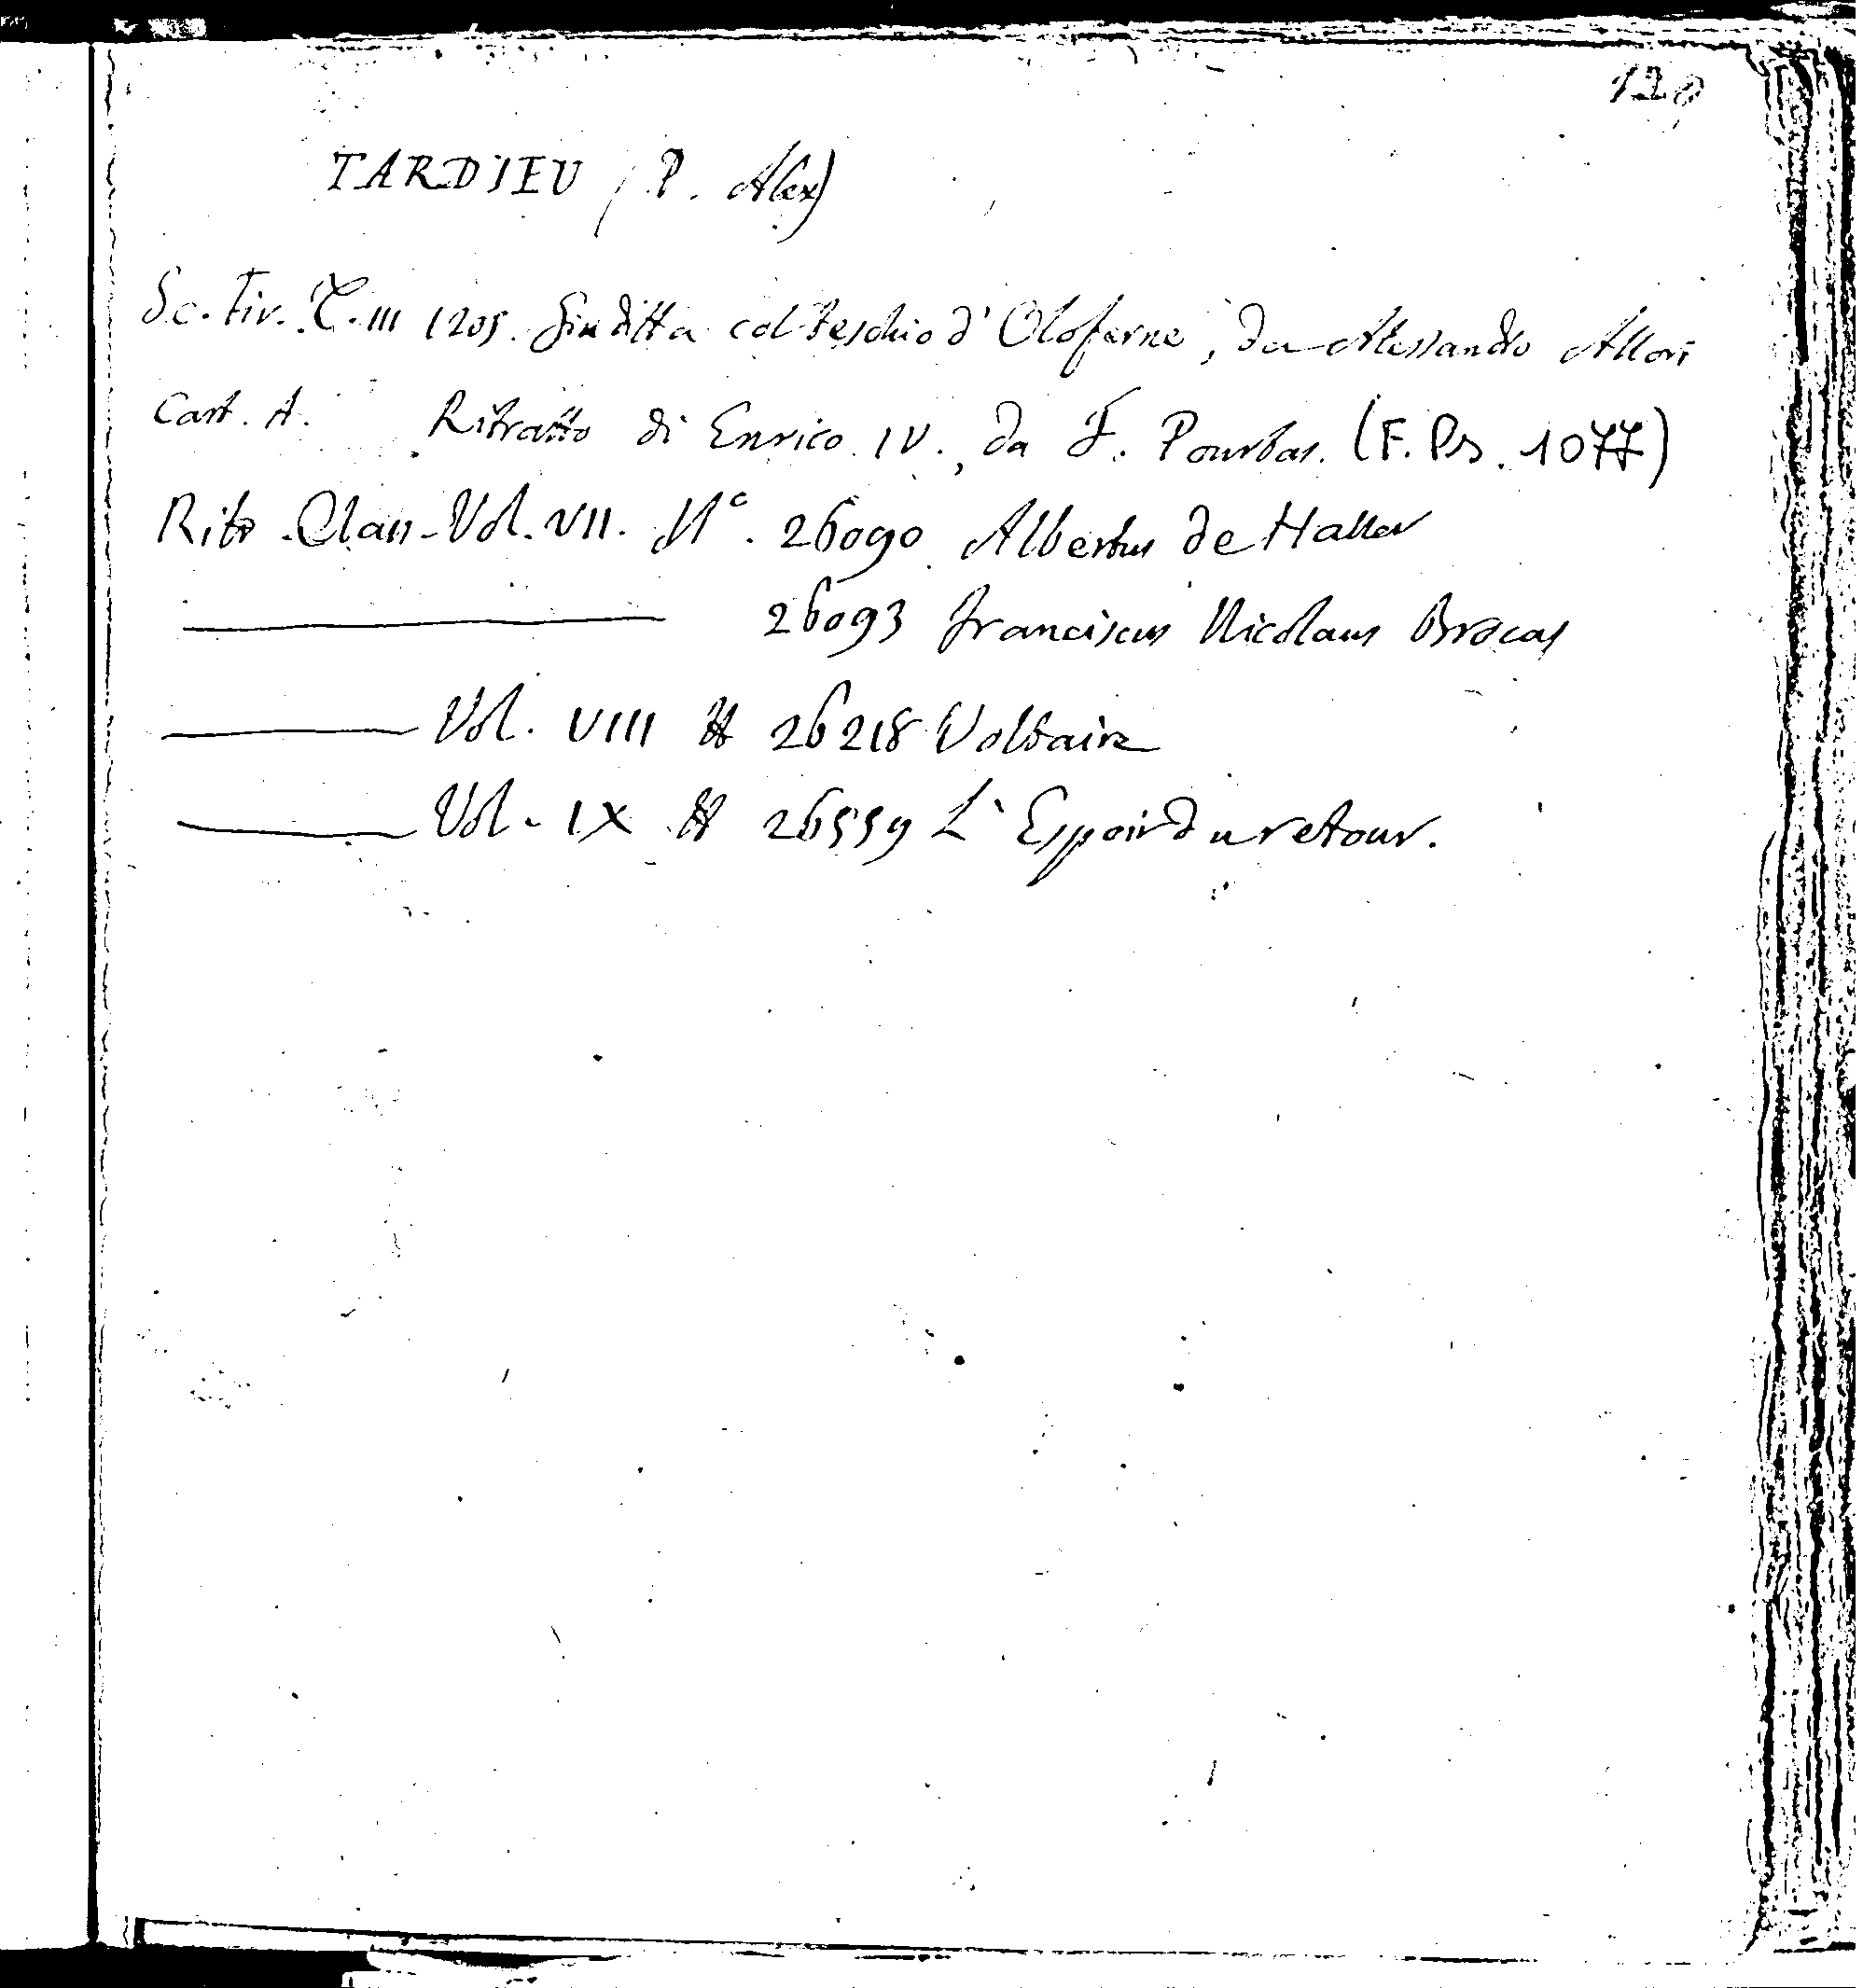 120
TARDIEU (P. Alex)
Sc. Tir. T. III 1205. Giuditta col teschio d' Oloferne, da Alessandro Allori
Cart. A. Ritratto di Enrico IV., da F. Pourbas. (F. Ps. 1077)
Ritr. Class. Vol. VII. N°. 26090 Albertus de Haller
26093 Franciscus Nicolaus Brocas
Vol. VIII # 26218 Voltaire
Vol. IX # 26559 L'Espoir du retour.